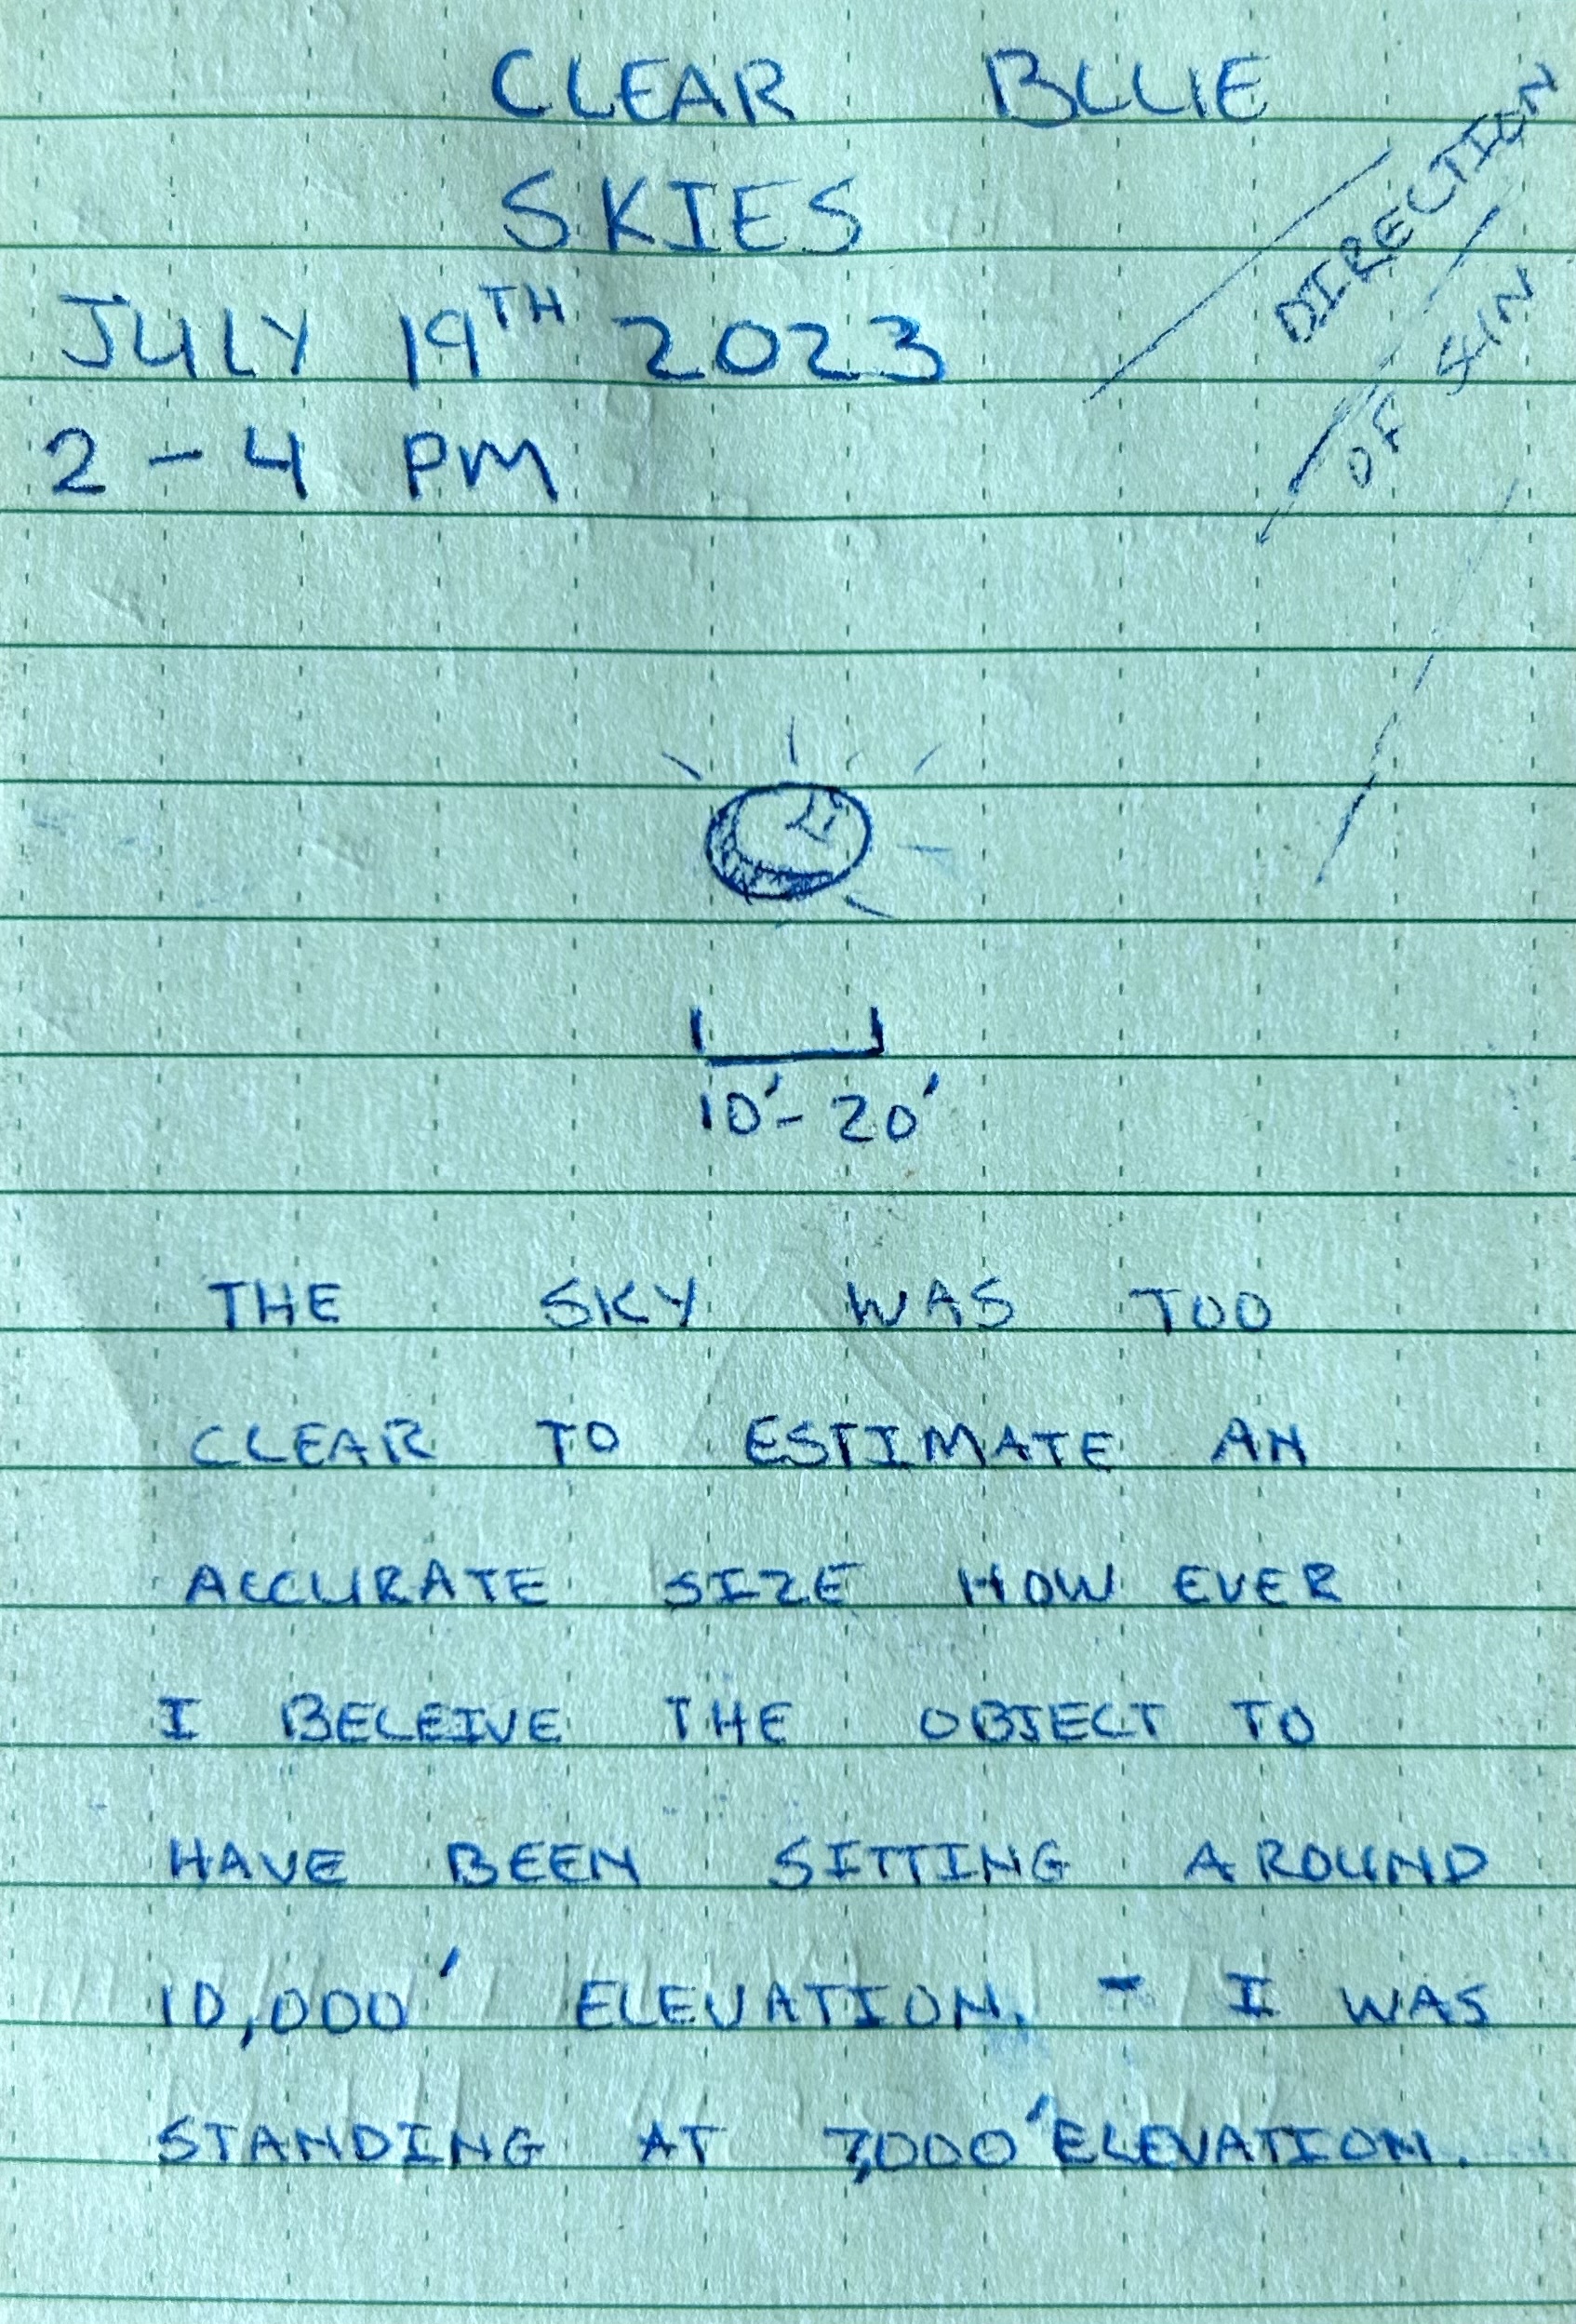 CLEAR BLUE
SKIES
DIRECTION
OF SUN
JULY 19TH 2023
2 - 4 PM
10'- 20'
THE SKY WAS TOO
CLEAR TO ESTIMATE AN
ACCURATE SIZE HOW EVER
I BELEIVE THE OBJECT TO
HAVE BEEN SITTING AROUND
10,000' ELEVATION. - I WAS
STANDING AT 7,000' ELEVATION.